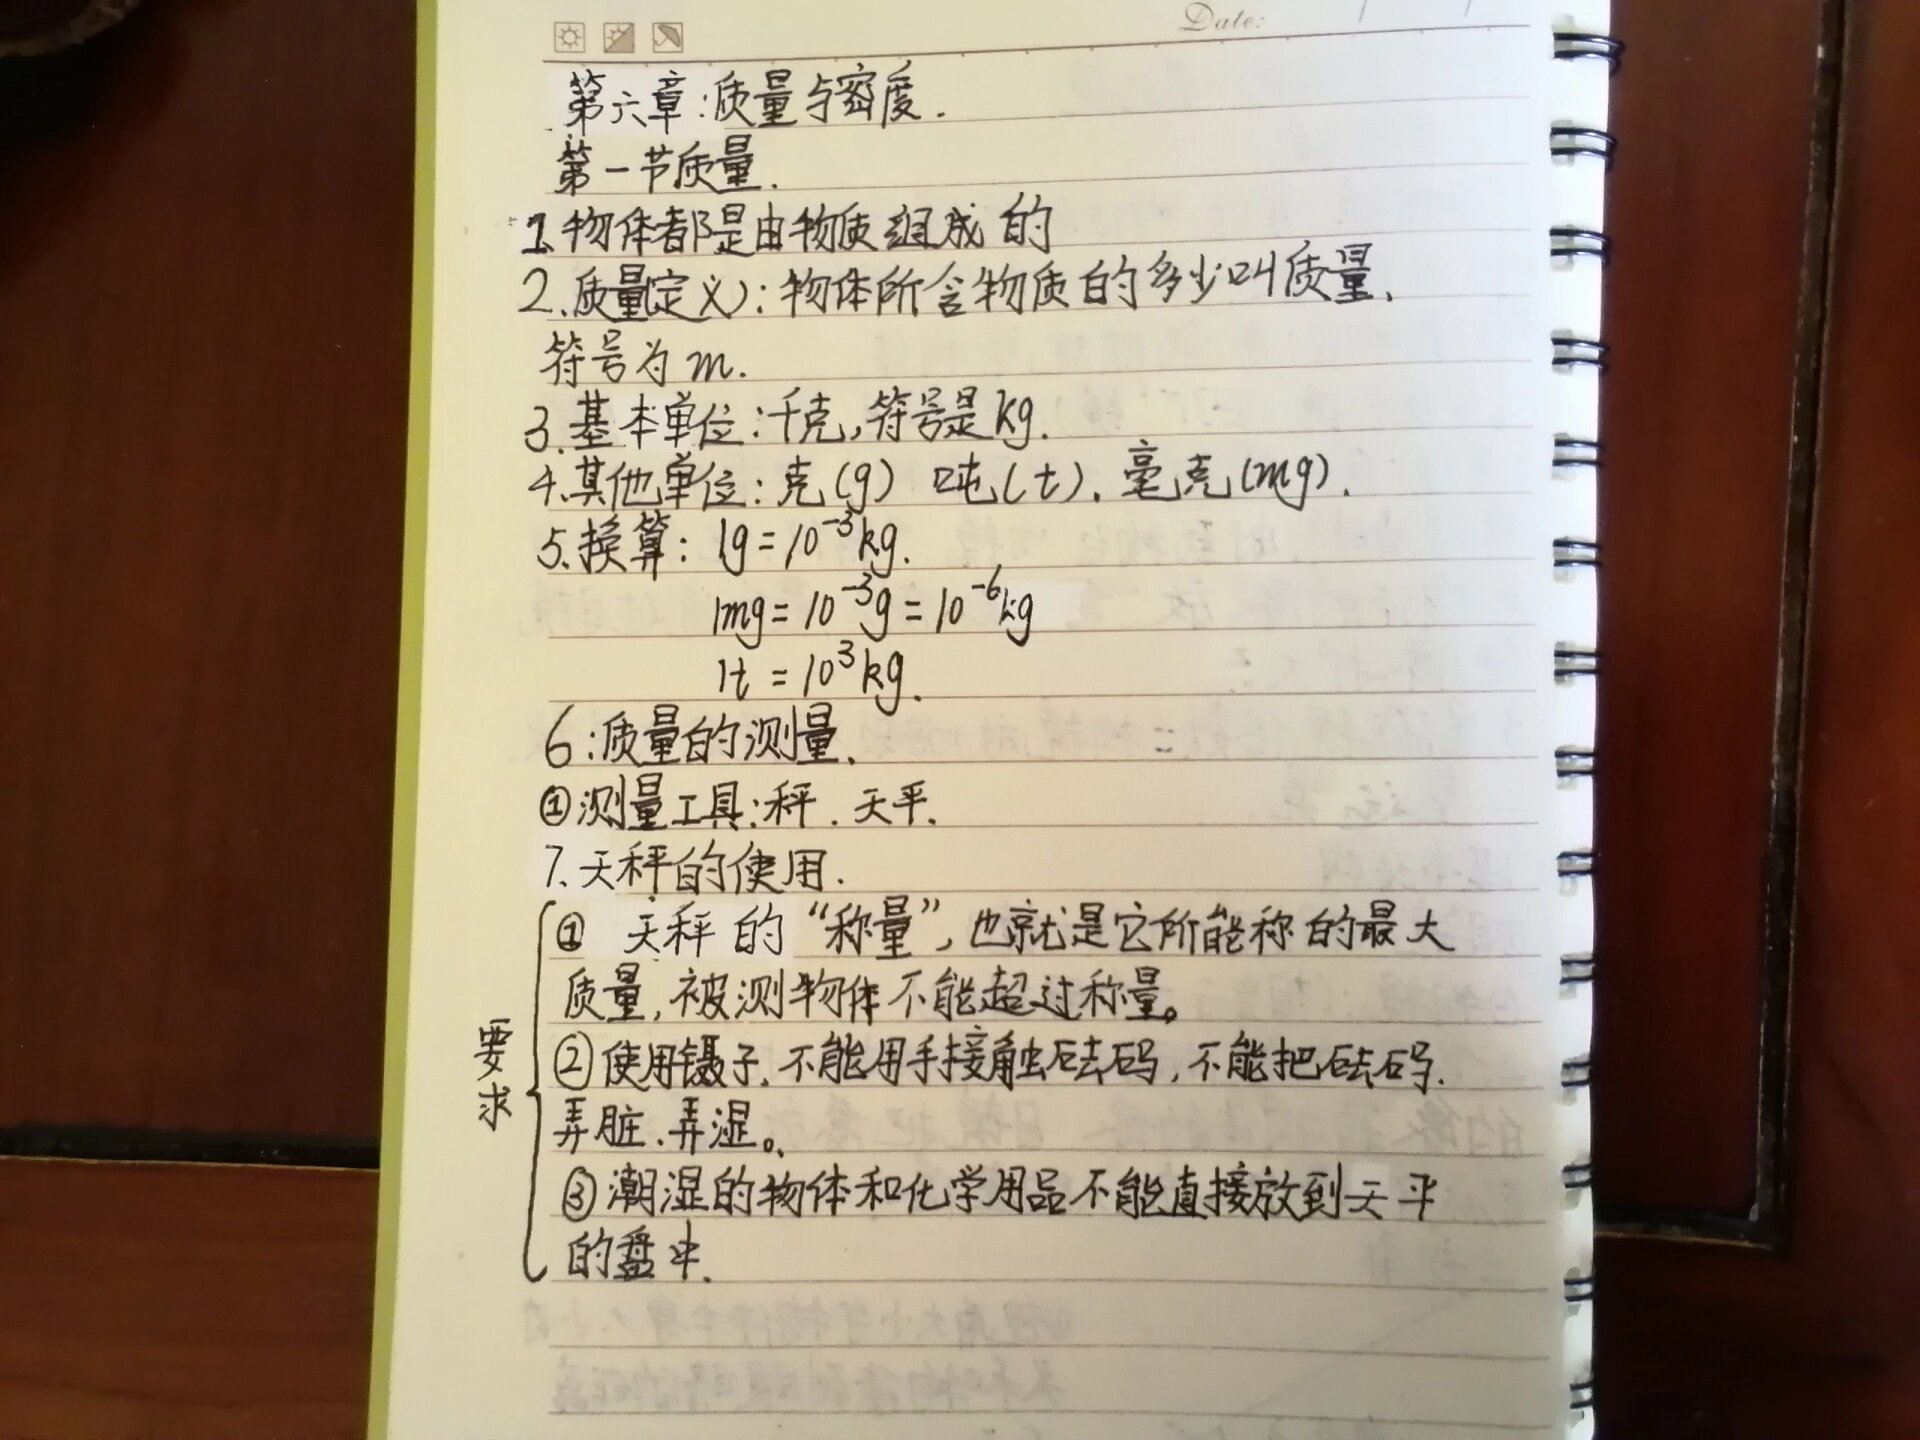 Date: / /
第六章:质量与密度.
第一节质量.
1.物体都是由物质组成的
2.质量定义):物体所含物质的多少叫质量.
符号为m.
3.基本单位:千克,符号是kg.
4.其他单位:克(g) 吨(t).毫克(mg).
5.换算: 1g=10⁻³kg.
1mg=10⁻³g=10⁻⁶kg
1t=10³kg.
6:质量的测量.
①测量工具:秤.天平.
7.天秤的使用.
要求
① 天秤的“称量”,也就是它所能称的最大
质量,被测物体不能超过称量。
②使用镊子.不能用手接触砝码,不能把砝码.
弄脏.弄湿。
③潮湿的物体和化学用品不能直接放到天平
的盘中.